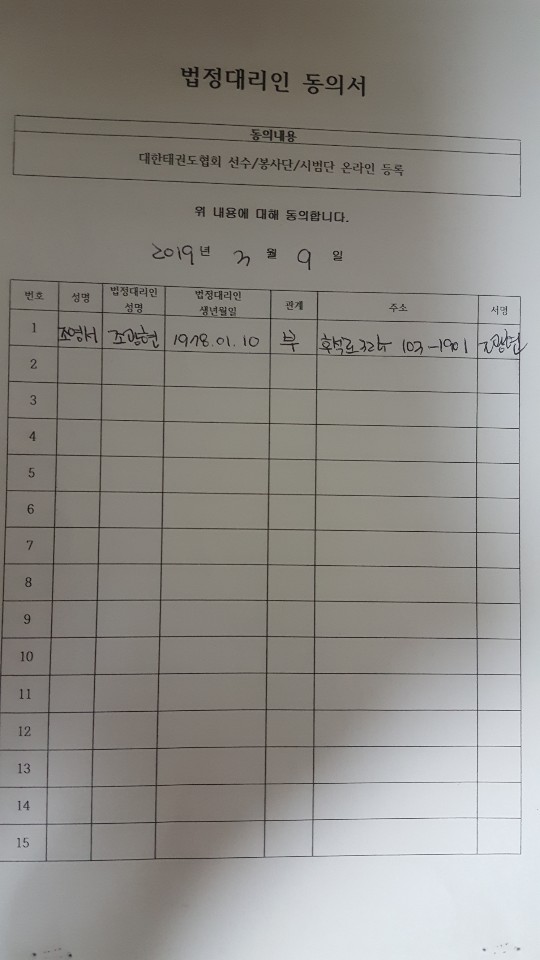 법정대리인 동의서
동의내용
대한태권도협회 선수/봉사단/시범단 온라인 등록
위 내용에 대해 동의합니다.
2019년 3월 9일
번호 성명 법정대리인 성명 법정대리인 생년월일 관계 주소 서명
1 조영서 조광현 1978.01.10 부 103-1901 조광현
2
3
4
5
6
7
8
9
10
11
12
13
14
15